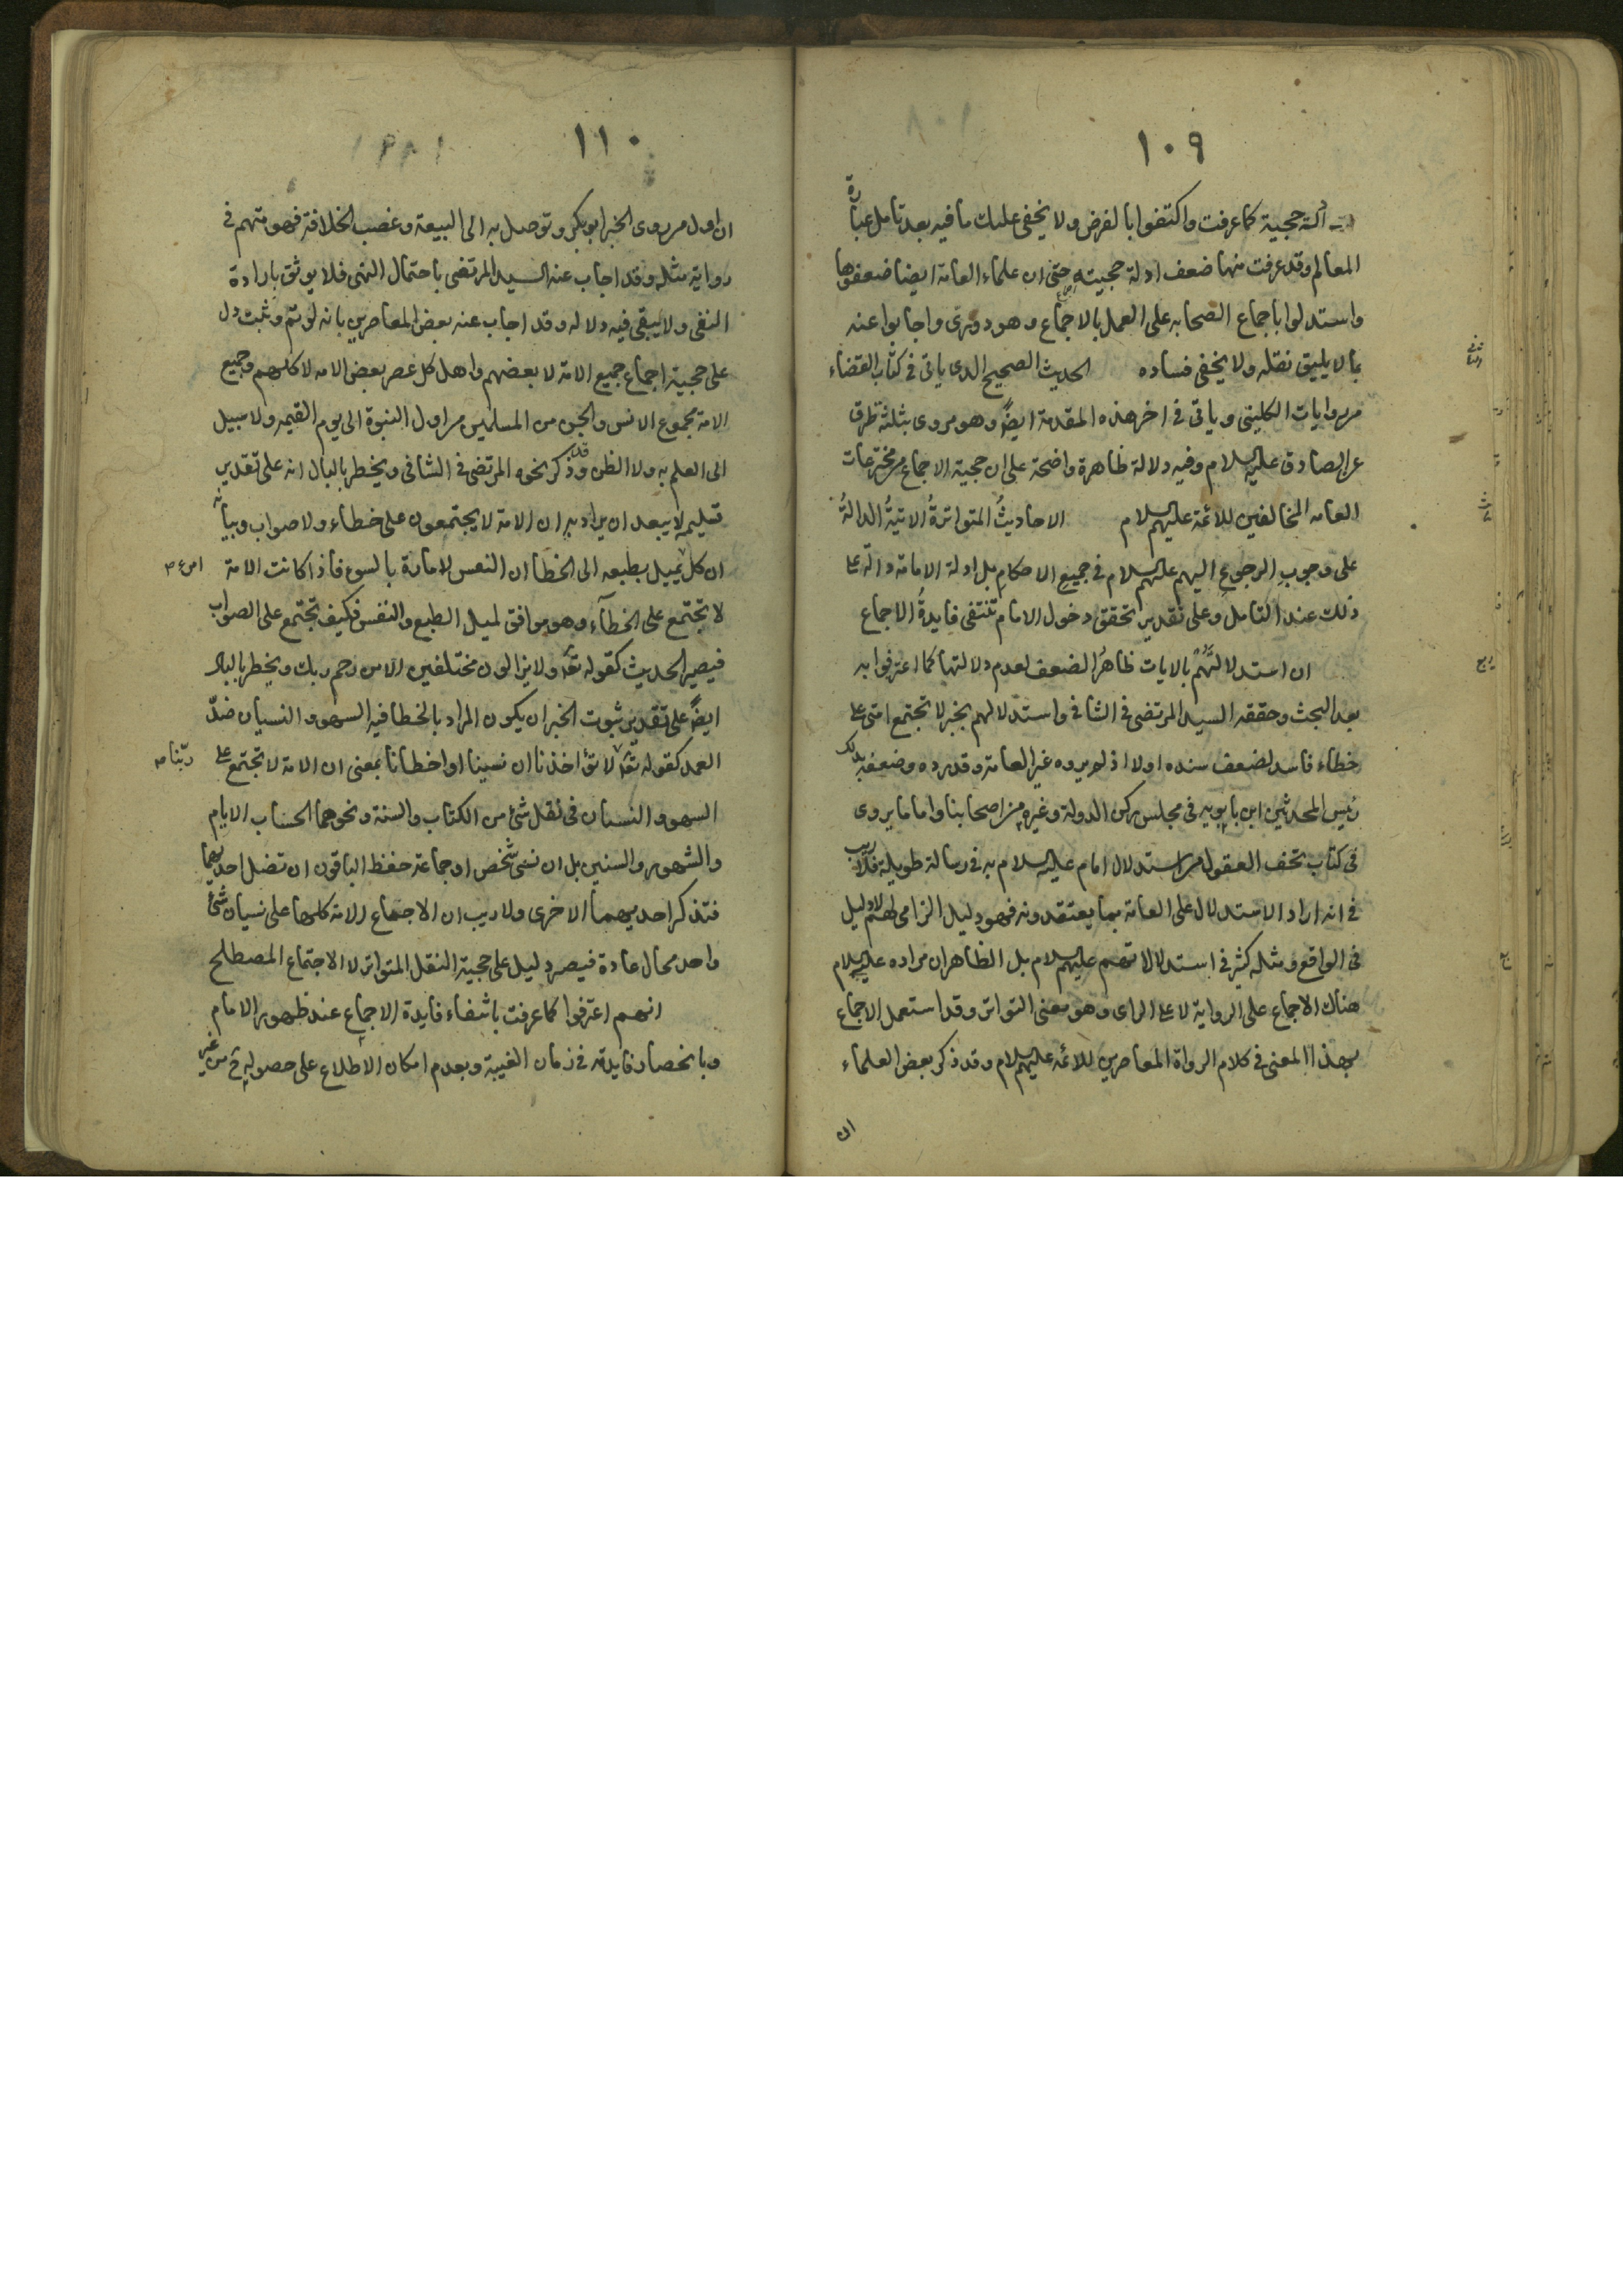 ١٠٩
حجية كما عرفت واكتفوا بالفرض ولا يخفى عليك ما فيه بعد تأمل عبارة
المعالم وقد عرفت منها ضعف ادلة حجيته حتى ان علماء العامة ايضا ضعفوها
واستدلوا باجماع الصحابه على العمل بالاجماع وهو دورى واجابوا عنه
بما لا يليق نقله ولا يخفى فساده الحديث الصحيح الدى ياتى فى كتاب القضاء
من روايات الكلينى وياتى فى اخر هذه المقدمة ايضً وهو مروى بثلثة طرق
عن الصادق عليه السلام وفيه دلالة ظاهرة واضحة على ان حجية الاجماع من مخترعات
العامه المخالفين للائمة عليهم السلام الاحاديثُ المتواترةُ الاتيةُ الدالةُ
على وجوب الرجوع اليهم عليهم السلام فى جميع الاحكام بل ادلة الامامة دالة على
ذلك عند التامل وعلى تقدير تحقق دخول الامام تنتفى فايدةُ الاجماع
ان استدلالَهُمْ بالايات ظاهرُ الضعف لعدم دلالتها كما اعترفوا به
بعد البحث وحققه السيد المرتضى فى الشافى واستدلالهم بخبر لا تجتمع امتى على
خطاء فاسد لضعف سنده اولا اذ لم يروه غير العامة وقد رده وضعفه بذلك
رئيس المحدثين ابن بابويه فى مجلس ركن الدولة وغيره من اصحابنا واما ما يروى
فى كتاب تحف العقول من استدلال امام عليه السلام به فى رسالة طويلة فلا ريب
فى انه اراد الاستدلال على العامة بما يعتقدونه فهو دليل الزامى لهم لا دليل
فى الواقع ومثله كثير فى استدلالاتهم عليهم السلام بل الظاهر ان مراده عليه السلام
هناك الاجماع على الرواية لا على الراى وهو معنى التواتر وقد استعمل الاجماع
بهذا المعنى فى كلام الرواة المعاصرين للائمه عليهم السلام وقد ذكر بعض العلماء
ان
١١٠
ان اول من روى الخبر ابو بكر وتوصل به الى البيعة وغصب الخلافة فهو متهم فى
رواية مثله وقد اجاب عنه السيد المرتضى باحتمال النهى فلا يوثق بارادة
النفى ولا يبقى فيه دلاله وقد اجاب عنه بعض المعاصرين بانه لو تم وثبت دل
على حجية اجماع جميع الامة لا بعضهم واهل كل عصر بعض الامه لا كلهم وجميع
الامة مجموع الانس والجن من المسلمين من اول النبوة الى يوم القيمه ولا سبيل
الى العلم به ولا الظن وقد ذكر نحوه المرتضى فى الشافى ويخطر بالبال انه على تقدير
تسليمه لا يبعد ان يراد به ان الامة لا يجتمعون على خطاء ولا صواب وبيانه
ان كل يميل بطبعه الى الخطأ ان النفس لامارة بالسوء فاذا كانت الامة
لا تجتمع على الخطآء وهو موافق لميل الطبع والنفس فكيف تجتمع على الصواب
فيصير الحديث كقوله تعا ولا يزالون مختلفين الا من رحم ربك ويخطر بالبال
ايضً على تقدير ثبوت الخبر ان يكون المراد بالخطا فيه السهو والنسيان ضدّ
العمد كقوله تعا لا تؤاخذنا ان نسينا او اخطانا بمعنى ان الامة لا تجتمع على
ربّنا
السهو والنسيان فى نقل شئ من الكتاب والسنة ونحوهما الحساب الايام
والشهور والسنين بل ان نسى شخص او جماعة حفظ الباقون ان تضل احديهما
فتذكر احديهما الاخرى ولا ريب ان الاجتماع الامة كلها على نسيان شئ
واحد محال عادة فيصر دليل على حجية النقل المتواتر لا الاجتماع المصطلح
انهم اعترفوا كما عرفت بانتفاء فايدة الاجماع عند ظهور الامام
وبانحصار فايدته فى زمان الغيبة وبعدم امكان الاطلاع على حصوله ح من غير